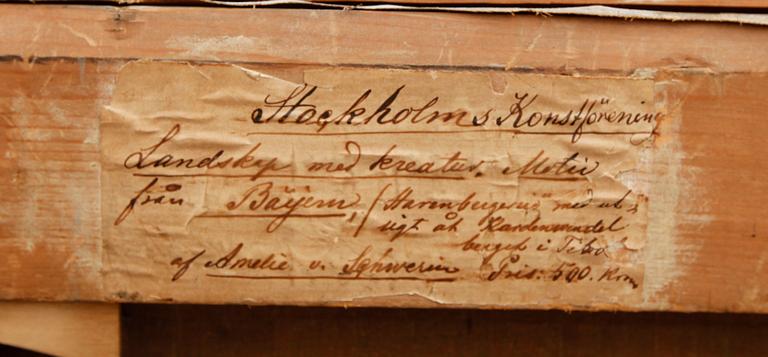 Stockholms Konstförening
Landskap med kreatur. Motiv
från Bäyern, (Starenbergersee med ut-
sigt åt Kardenwendel
berget i Tibo
af Amelie v. Schwerin Pris: 500. Kron